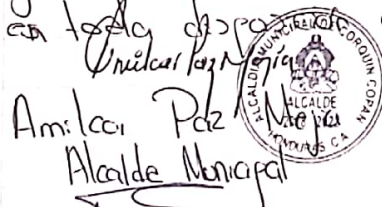 en toda
Amilcar Paz Mejía
Amilcar Paz Mejia
Alcalde Municipal
ALCALDIA MUNICIPAL DE CORQUIN COPAN
ALCALDE
HONDURAS C.A.